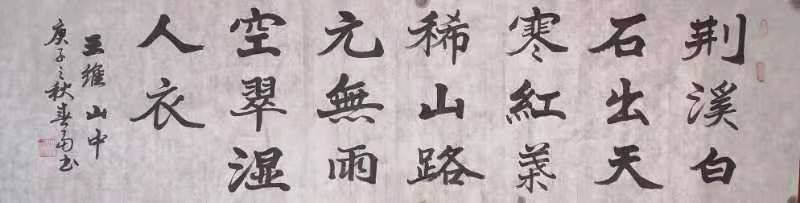 荆溪白
石出天
寒紅葉
稀山路
元無雨
空翠湿
人衣
王維山中
庚子之秋春雨书